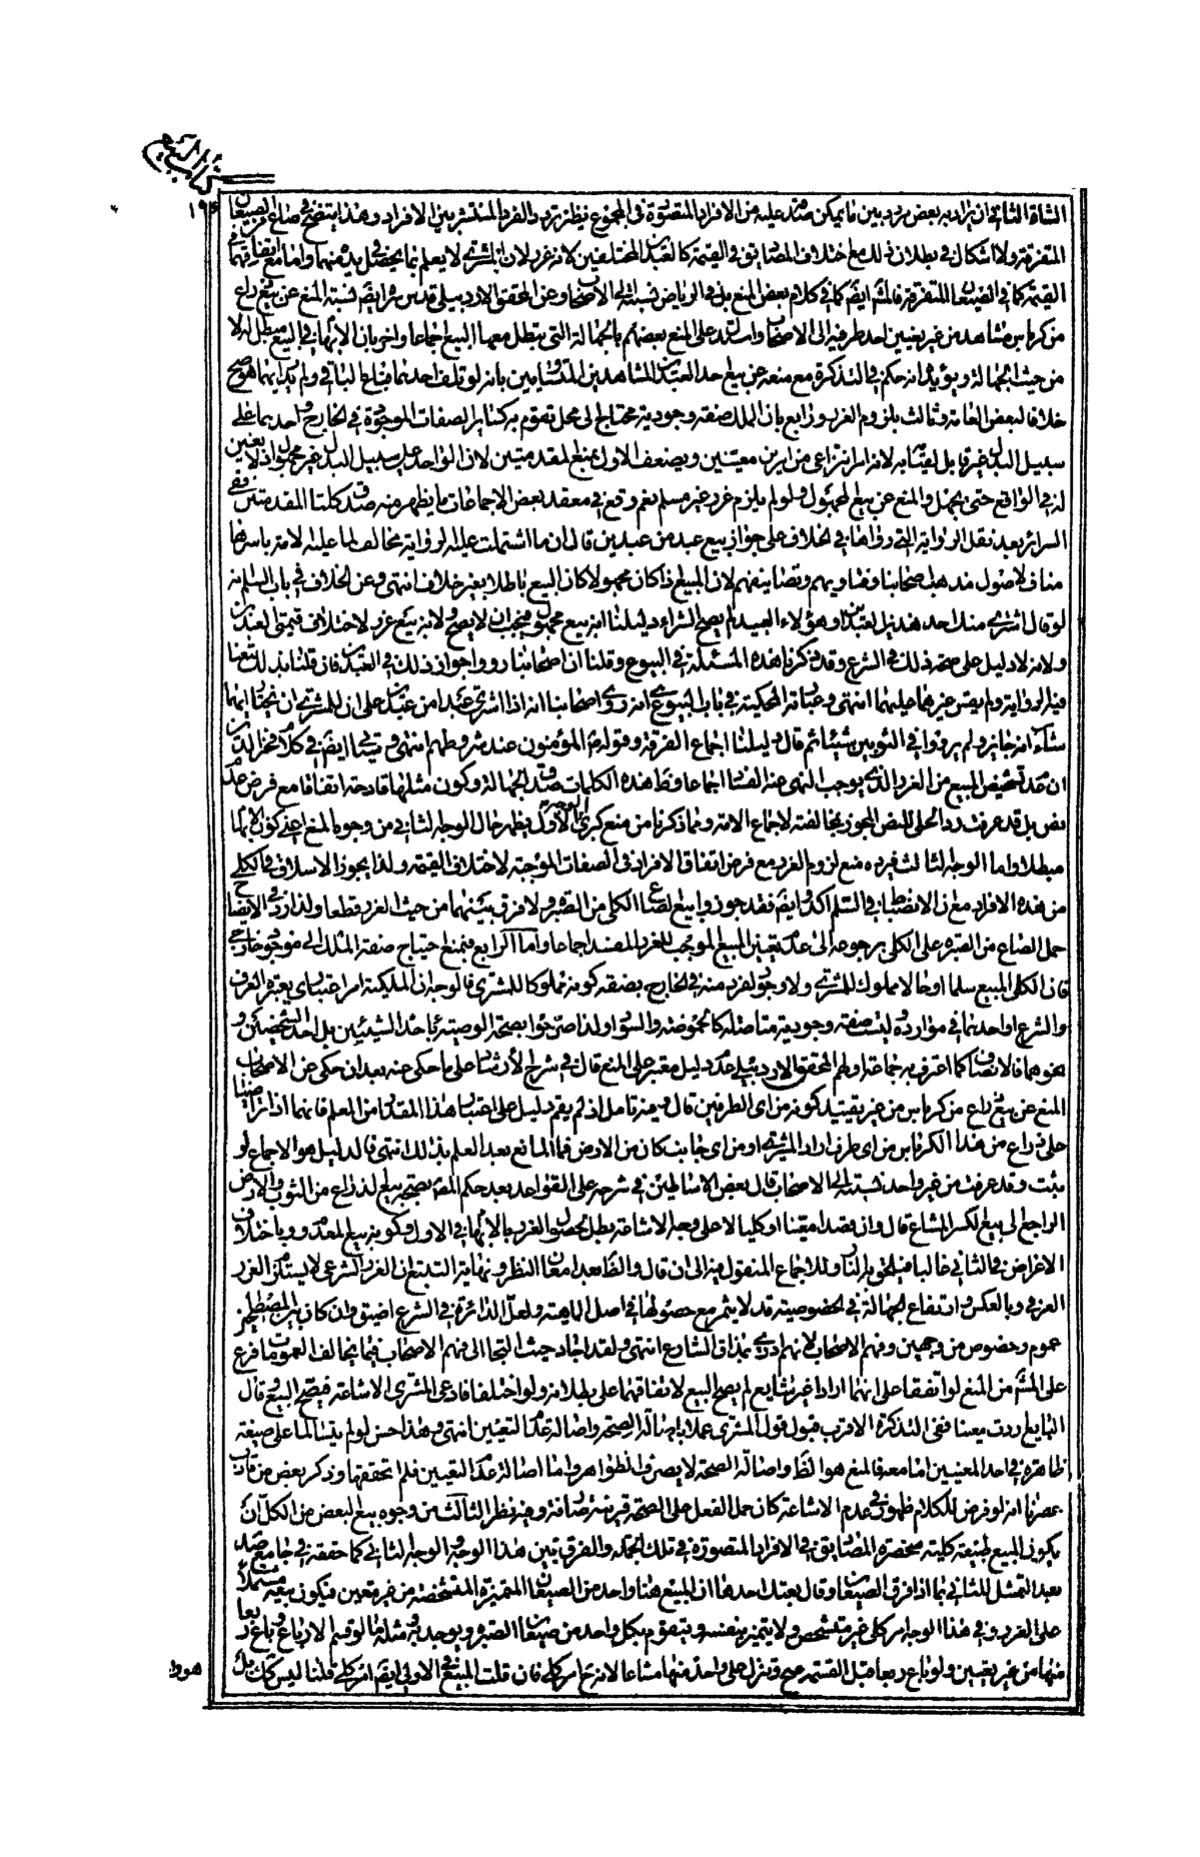 كتاب البيع
١٩٦
الشاة الثانى ان يراد به بعض مردد بين ما يمكن صدقه عليه من الافراد المتصورة فى المجموع نظير تردد الفرد المنتشر بين الافراد وهذا يتضح فى صاع من الصيعان
المتفرقة ولا اشكال فى بطلان ذلك مع اختلاف المصاديق فى القيمة كالعبدين المختلفين لانه غرر لان المشترى لا يعلم بما يحصل فى يده منهما واما مع اتفاقهما فى
القيمة كما فى الصيعان المتفرقة فالمشهور ايضا كما فى كلام بعض المنع بل فى الرياض نسبته الى الاصحاب وعن المحقق الاردبيلى قدس سره ايضا نسبة المنع عن بيع ذراع
من كرباس مشاهد من غير تعيين احد طرفيه الى الاصحاب واستدل على المنع بعضهم بالجهالة التى يبطل معها البيع اجماعا واخر بان الابهام فى البيع مبطل له لا
من حيث الجهالة ويؤيده انه حكم فى التذكرة مع منعه عن بيع احد العبدين المشاهدين المتساويين بانه لو تلف احدهما فباع الباقى ولم يدر ايهما هو صح
خلافا لبعض العامة وثالث بلزوم الغرر ورابع بان الملك صفة وجودية محتاج الى محل تقوم به كسائر الصفات الموجودة فى الخارج واحدهما على
سبيل البدل غير قابل لقيامه به لانه امر انتزاعى من امرين معينين ويضعف الاول بمنع المقدمتين لان الواحد على سبيل البدل غير مجهول اذ لا تعين
له فى الواقع حتى يجهل والمنع عن بيع المجهول ولو لم يلزم غرر غير مسلم نعم وقع فى معقد بعض الاجماعات ما يظهر منه صدق كلتا المقدمتين ففى
السرائر بعد نقل الرواية التى رواها فى الخلاف على جواز بيع عبد من عبدين قال ان ما اشتملت عليه الرواية مخالف لما عليه الامة باسرها
مناف لاصول مذهب اصحابنا وفتاويهم وتصانيفهم لان المبيع اذا كان مجهولا كان البيع باطلا بغير خلاف انتهى وعن الخلاف فى باب السلم انه
لو قال اشترى منك احد هذين العبدين او هؤلاء العبيد لم يصح الشراء دليلنا انه بيع مجهول فيجب ان لا يصح ولانه بيع غرر لاختلاف قيمتى العبدين
ولانه لا دليل على صحة ذلك فى الشرع وقد ذكرنا هذه المسئلة فى البيوع وقلنا ان اصحابنا رووا جواز ذلك فى العبدين فان قلنا بذلك تبعنا
فيه الرواية ولم يقس غيرهما عليهما انتهى وعبارته المحكية فى باب البيوع هى انه روى اصحابنا انه اذا اشترى عبدا من عبدين على ان للمشترى ان يختار ايهما
شاء انه جايز ولم يرووا فى الثوبين شيئا ثم قال دليلنا اجماع الفرقة وقوله المؤمنون عند شروطهم انتهى وسيأتى ايضا فى كلام فخر الدين
ان عدم تشخيص المبيع من الغرر الذى يوجب النهى عنه الفساد اجماعا وظاهر هذه الكلمات صدق الجهالة وكون مثلها قادحة اتفاقا مع فرض عدم
نص بل قد عرفت رد الحلى للنص المجوز بمخالفته لاجماع الامة ومما ذكرنا من منع كبرى الوجه الاول يظهر حال الوجه الثانى من وجوه المنع اعنى كون الابهام
مبطلا واما الوجه الثالث فيرده منع لزوم الغرر مع فرض اتفاق الافراد فى الصفات الموجبة لاختلاف القيمة ولذا يجوز الاسلاف فى الكلى
من هذه الافراد مع ان الانضباط فى السلم اكد وايضا فقد جوزوا بيع الصاع الكلى من الصبرة ولا فرق بينهما من حيث الغرر قطعا ولذا رد فى الايضاح
حمل الصاع من الصبرة على الكلى برجوعه الى عدم تعيين المبيع الموجب للغرر المفسد اجماعا واما الرابع فبمنع احتياج صفة الملك الى موجود خارجى
فان الكلى المبيع سلما او حالا مملوك للمشترى ولا وجود لفرد منه فى الخارج بصفة كونه مملوكا للمشترى فالوجه ان الملكية امر اعتبارى يعتبره العرف
والشرع او احدهما فى موارده وليست صفة وجودية متاصلة كالحموضة والسواد ولذا صرحوا بصحة الوصية باحد الشيئين بل احد الشخصين و
نحوهما فالانصاف كما اعترف به جماعة اولهم المحقق الاردبيلى عدم دليل معتبر على المنع قال فى شرح الارشاد على ما حكى عنه بعد ان حكى عن الاصحاب
المنع عن بيع ذراع من كرباس من غير تقييد كونه من اى الطرفين قال وفيه تامل اذ لم يقم دليل على اعتبار هذا المقدار من العلم فانهما اذا تراضيا
على ذراع من هذا الكرباس من اى طرف اراد المشترى او من اى جانب كان من الارض فما المانع بعد العلم بذلك انتهى فالدليل هو الاجماع لو
ثبت وقد عرفت من غير واحد نسبته الى الاصحاب قال بعض الاساطين فى شرحه على القواعد بعد حكم المصنف بصحة بيع الذراع من الثوب والارض
الراجع الى بيع الكسر المشاع قال وان قصدا معينا او كليا لا على وجه الاشاعة بطل لحصول الغرر بالابهام فى الاول وكونه بيع المعدوم وباختلاف
الاغراض فى الثانى غالبا فيلحق به النادر وللاجماع المنقول فيه الى ان قال والظاهر بعد امعان النظر ونهاية التتبع ان الغرر الشرعى لا يستلزم الغرر
العرفى وبالعكس وارتفاع الجهالة فى الخصوصية قد لا يثمر مع حصولها فى اصل الماهية ولعل الدائرة فى الشرع اضيق وان كان بين المصطلحين
عموم وخصوص من وجهين وفهم الاصحاب لانهم ادرى بمذاق الشارع انتهى ولقد اجاد حيث التجأ الى فهم الاصحاب فيما يخالف العمومات فرع
على المشهور من المنع لو اتفقا على انهما ارادا غير شايع لم يصح البيع لاتفاقهما على بطلانه ولو اختلفا فادعى المشترى الاشاعة فيصح البيع وقال
البايع اردت معينا ففى التذكرة الاقرب قبول قول المشترى عملا باصالة الصحة واصالة عدم التعيين انتهى وهذا حسن لو لم يتسالما على صيغة
ظاهرة فى احد المعنيين اما معه فالمتبع هو الظاهر واصالة الصحة لا يصرف الظواهر واما اصالة عدم التعيين فلم اتحققها وذكر بعض من قارب
عصرنا انه لو فرض للكلام ظهور فى عدم الاشاعة كان حمل الفعل على الصحة قرينة صارفة وفيه نظر الثالث من وجوه بيع البعض من الكل ان
يكون المبيع طبيعة كلية منحصرة المصاديق فى الافراد المتصورة فى تلك الجملة والفرق بين هذا الوجه والوجه الثانى كما حققه فى جامع صد
بعد التمثيل للثانى بما اذا فرق الصيعان وقال بعتك احدها ان المبيع هناك واحد من الصيعان المتميزة المتشخصة من غير تعيين فيكون بيعه مشتملا
على الغرر وفى هذا الوجه امر كلى غير متشخص ولا يتميز بنفسه ويتقوم بكل واحد من صيعان الصبرة ويوجد به ومثله ما لو قسم الارباع وباع ربعا
منها من غير تعيين ولو باع ربعا قبل القسمة صح وتنزل على واحد منها مشاعا لانه ح امر كلى فان قلت المبيع فى الاولى ايضا امر كلى قلنا ليس كك بل
هو واحد